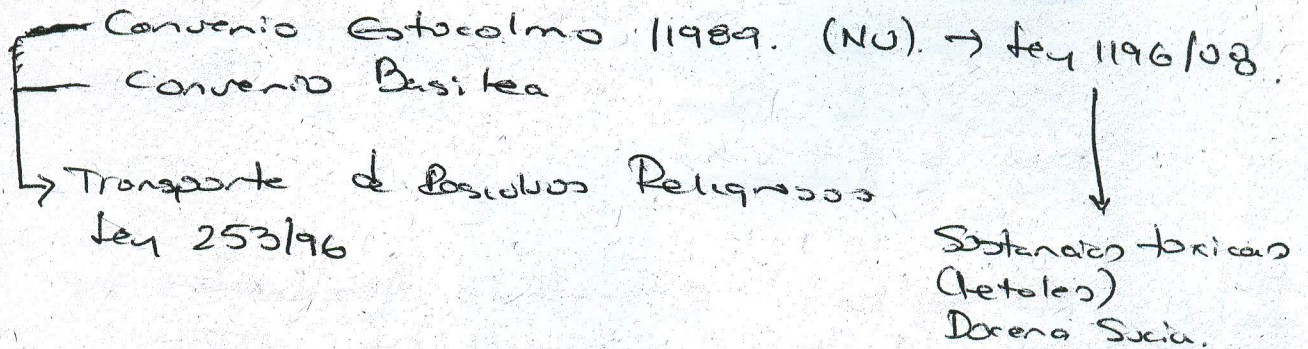 Convenio Estocolmo 11989. (NU). → Ley 1196/08.
Convenio Basilea
Transporte de Residuos Peligrosos
Ley 253/96
Sustancias toxicas
(letales)
Docena Sucia.